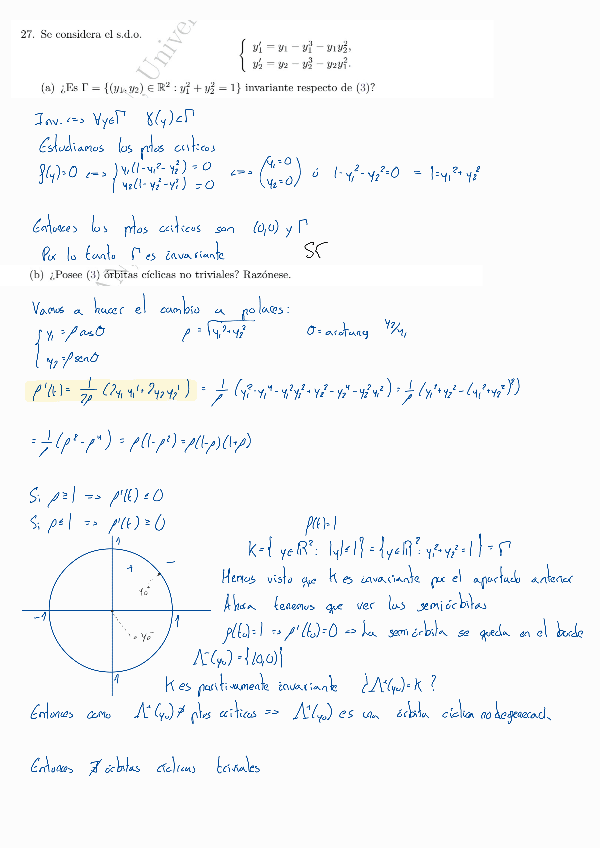 27. Se considera el s.d.o.
{ y₁' = y₁ − y₁³ − y₁y₂²,
y₂' = y₂ − y₂³ − y₂y₁².
(a) ¿Es Γ = {(y₁, y₂) ∈ ℝ² : y₁² + y₂² = 1} invariante respecto de (3)?
Inv. <=> ∀y∈Γ γ(y)⊂Γ
Estudiamos los ptos críticos
f(y)=0 <=> { y₁(1-y₁²-y₂²)=0 <=> (y₁=0 ó 1-y₁²-y₂²=0 = 1=y₁²+y₂²
y₂(1-y₂²-y₁²)=0 y₂=0)
Entonces los ptos críticos son (0,0) y Γ
Por lo tanto Γ es invariante
(b) ¿Posee (3) órbitas cíclicas no triviales? Razónese.
Vamos a hacer el cambio a polares:
{ y₁ = ρ cosθ ρ = √(y₁²+y₂²) θ = arctang y₂/y₁
y₂ = ρ senθ
ρ'(t) = 1/2ρ (2y₁y₁'+2y₂y₂') = 1/ρ (y₁²-y₁⁴-y₁²y₂²+y₂²-y₂⁴-y₂²y₁²) = 1/ρ (y₁²+y₂²-(y₁²+y₂²)²)
= 1/ρ (ρ²-ρ⁴) = ρ(1-ρ²) = ρ(1-ρ)(1+ρ)
Si ρ≥1 => ρ'(t) ≤ 0
Si ρ≤1 => ρ'(t) ≥ 0
ρ(t)=1
K = { y∈ℝ² : |y|≤1 } = { y∈ℝ² : y₁²+y₂²=1 } = Γ
Hemos visto que K es invariante por el apartado anterior
Ahora tenemos que ver las semiórbitas
ρ(t₀)=1 => ρ'(t₀)=0 => La semiórbita se queda en el borde
Λ⁻(y₀) = {(0,0)}
K es positivamente invariante ¿Λ⁺(y₀)=K?
1
-1
1
-1
Entonces como Λ⁺(y₀) ∌ ptos críticos => Λ⁺(y₀) es una órbita cíclica no degenerad.
Entonces ∄ órbitas cíclicas triviales